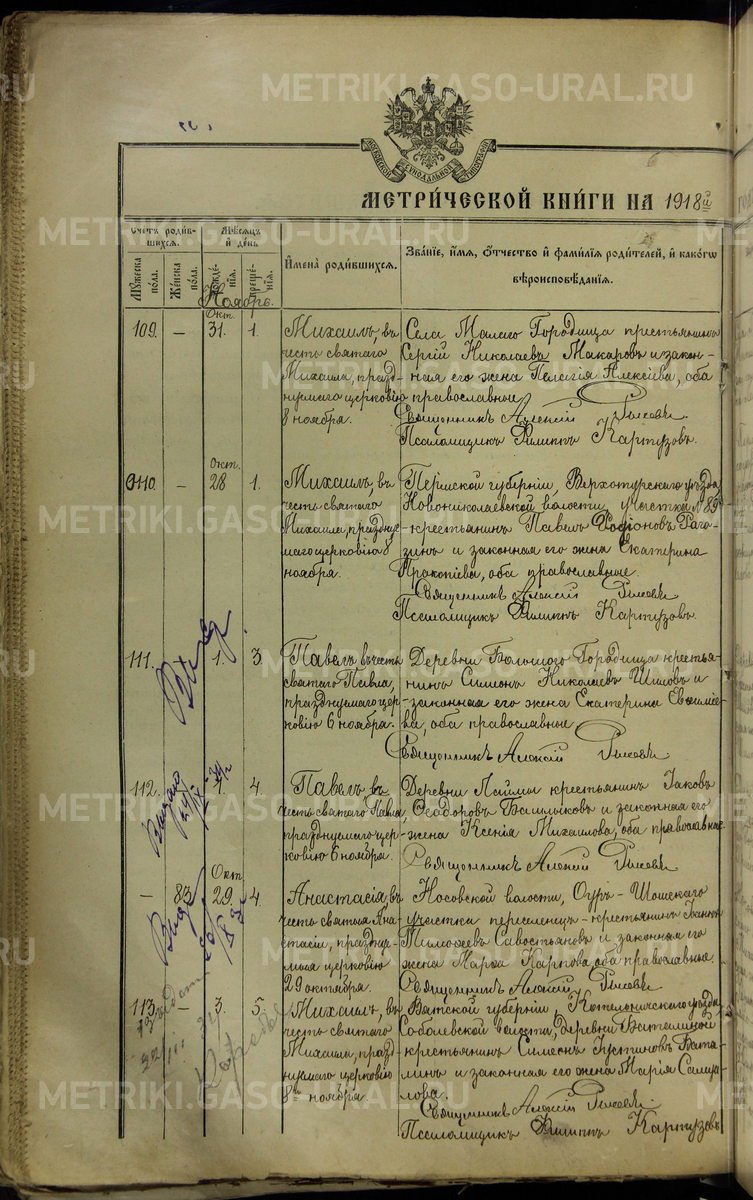 METRIKI.GASO-URAL.RU
МЕТРИ́ЧЕСКОЙ КНИ́ГИ НА 1918й
Счетъ роди́вшихся.
Мѣ́сяцъ и҆ де́нь
И҆мена̀ роди́вшихся.
Зва́нїе, и҆́мѧ, ѻ҆́тчество и҆ фами́лїѧ роди́телей, и҆ како́гѡ вѣроисповѣ́данїѧ.
Му́жеска по́ла.
Же́нска по́ла.
Рожде́нїѧ.
Креще́нїѧ.
Ноябрь.
Окт.
109. — 31. 1.
Михаилъ, въ честь святаго Михаила, празднуемаго церковію 8 ноября.
Села Малаго Городища крестьянинъ
Сергій Николаевъ Макаровъ и закон-
ная его жена Пелагія Алексіева, оба
православные.
Священникъ Алексій
Псаломщикъ Филиппъ Картузовъ.
Окт.
110. — 28 1.
Михаилъ, въ честь святаго Михаила, празднуемаго церковію 8 ноября.
Пермской губерніи, Верхотурскаго уѣзда,
Новониколаевской волости, участка № 89
крестьянинъ Павелъ Родіоновъ Раго-
зинъ и законная его жена Екатерина
Прокопіева, оба православные.
Священникъ Алексій
Псаломщикъ Филиппъ Картузовъ.
111. 1. 3.
Павелъ въ честь святаго Павла, празднуемаго церковію 6 ноября.
Деревни Большого Городища крестья-
нинъ Симеонъ Николаевъ Шиловъ и
законная его жена Екатерина Евфиміе-
ва, оба православные.
Священникъ Алексій
112. 4.
Павелъ, въ честь святаго Павла, празднуемаго церковію 6 ноября.
Деревни крестьянинъ Іаковъ
Ѳеодоровъ и законная его
жена Ксенія Михаилова, оба православные.
Священникъ Алексій
Окт.
— 83. 29. 4
Анастасія, въ честь святыя Анастасіи, празднуемыя церковію 29 октября.
Носовской волости, Шошскаго
участка переселенецъ-крестьянинъ Іоаннъ
Тимоѳеевъ Савостьяновъ и законная его
жена Марѳа Карпова, оба православные
Священникъ Алексій
113. — 3. 5.
Михаилъ, въ честь святаго Михаила, празднуемаго церковію 8го ноября
Вятской губерніи, Котельничскаго уѣзда,
Соболевской волости, деревни
крестьянинъ Симеонъ Іустиновъ Бата-
линъ и законная его жена Марія Самуи-
лова.
Священникъ Алексій
Псаломщикъ Филиппъ Картузовъ